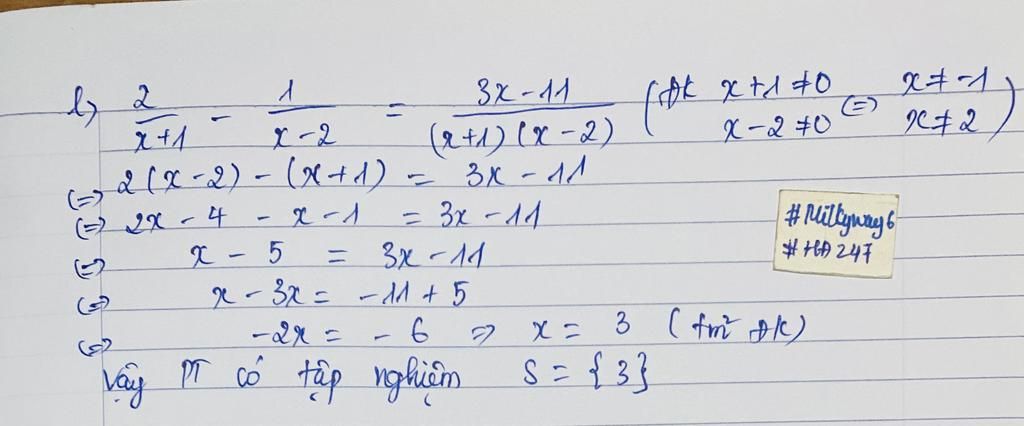 b) 2/(x+1) - 1/(x-2) = (3x-11)/((x+1)(x-2)) (ĐK x+1≠0 x-2≠0 (=) x≠-1 x≠2)
(=) 2(x-2) - (x+1) = 3x-11
(=) 2x - 4 - x - 1 = 3x - 11
(=) x - 5 = 3x - 11
(=) x - 3x = -11 + 5
(=) -2x = - 6 => x = 3 (tm² ĐK)
Vậy PT có tập nghiệm S = {3}
#Milkyway6
#HĐ247